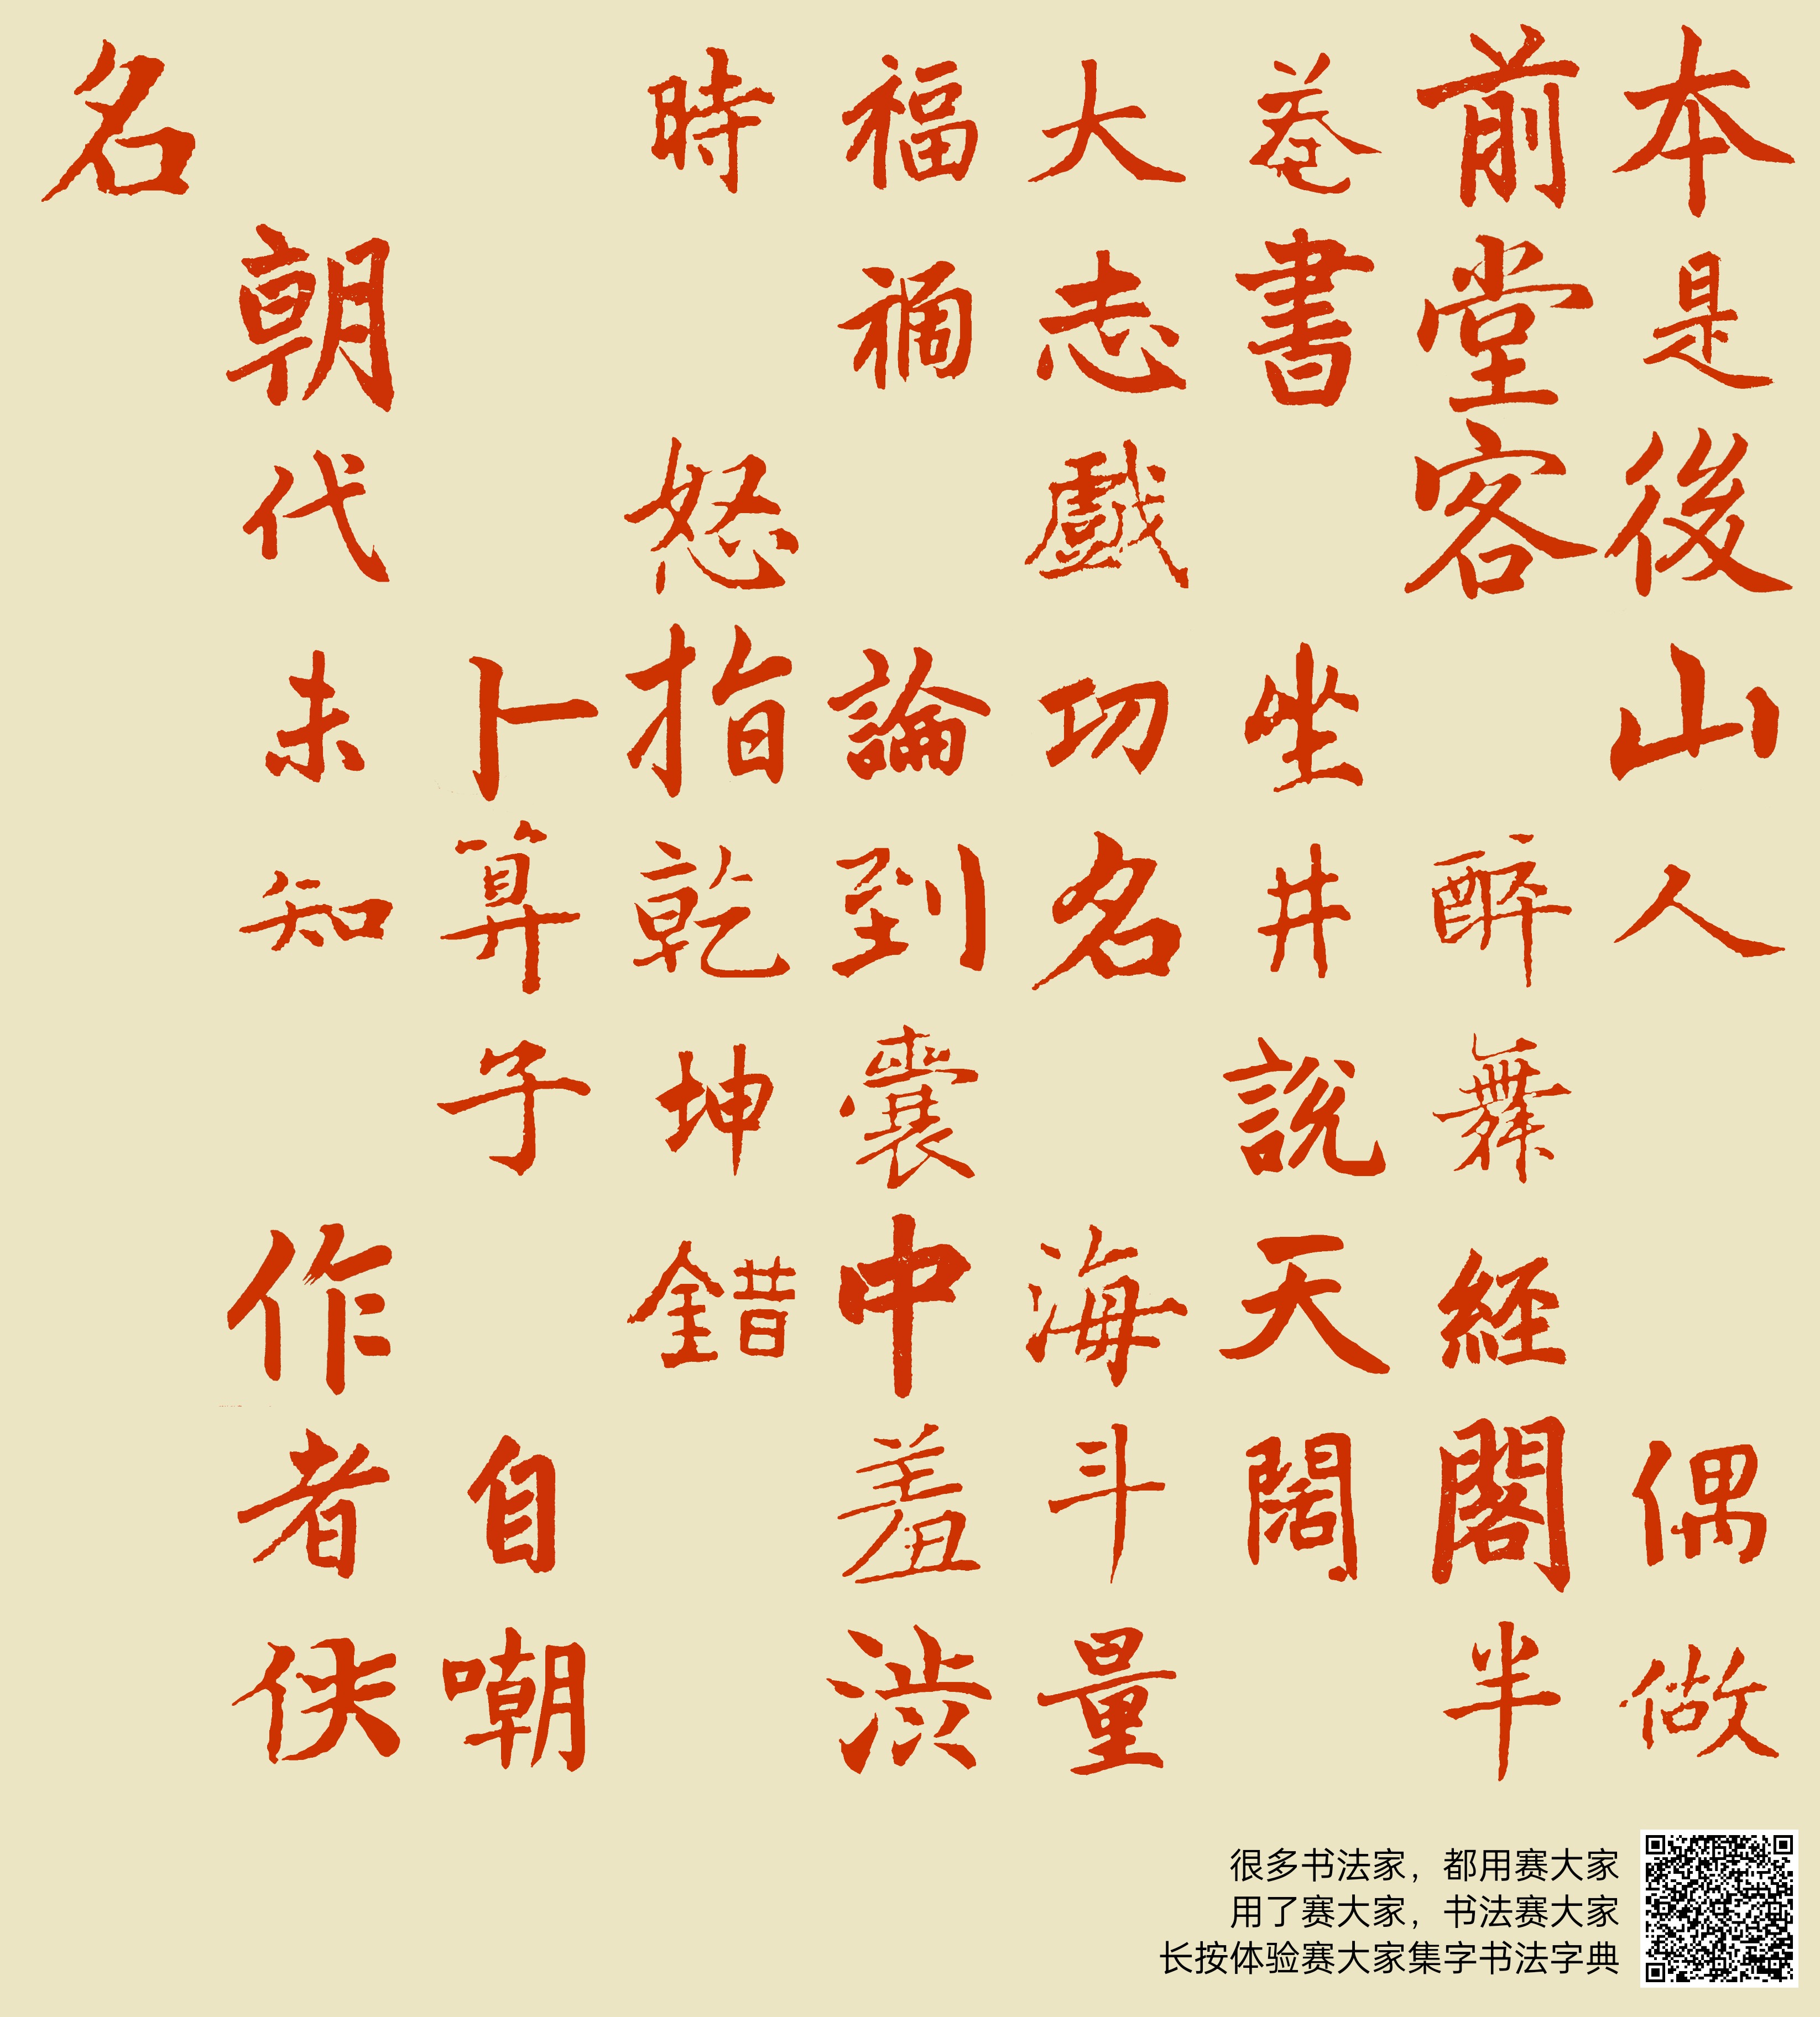 本是後山人 偶做
前堂客 醉舞經閣半
卷書 坐井說天闊
大志戲 功名 海斗量
福禍 論到囊中羞渋
時 怒指乾坤錯
卜算子 自嘲
朝代 未知 作者佚
名
很多书法家，都用赛大家
用了赛大家，书法赛大家
长按体验赛大家集字书法字典